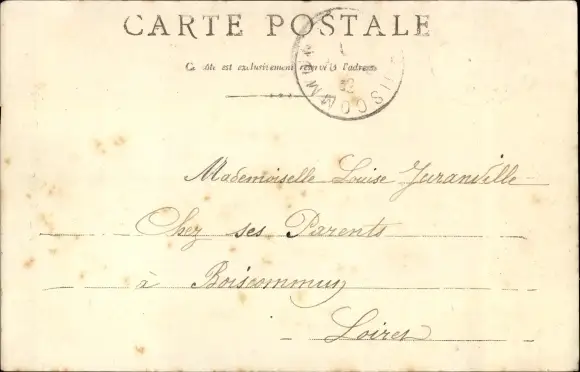 CARTE POSTALE
Ce côté est exclusivement réservé à l'adresse
BOISCOMMUN
Mademoiselle Louise Juranville
Chez ses Parents
à Boiscommun
Loiret